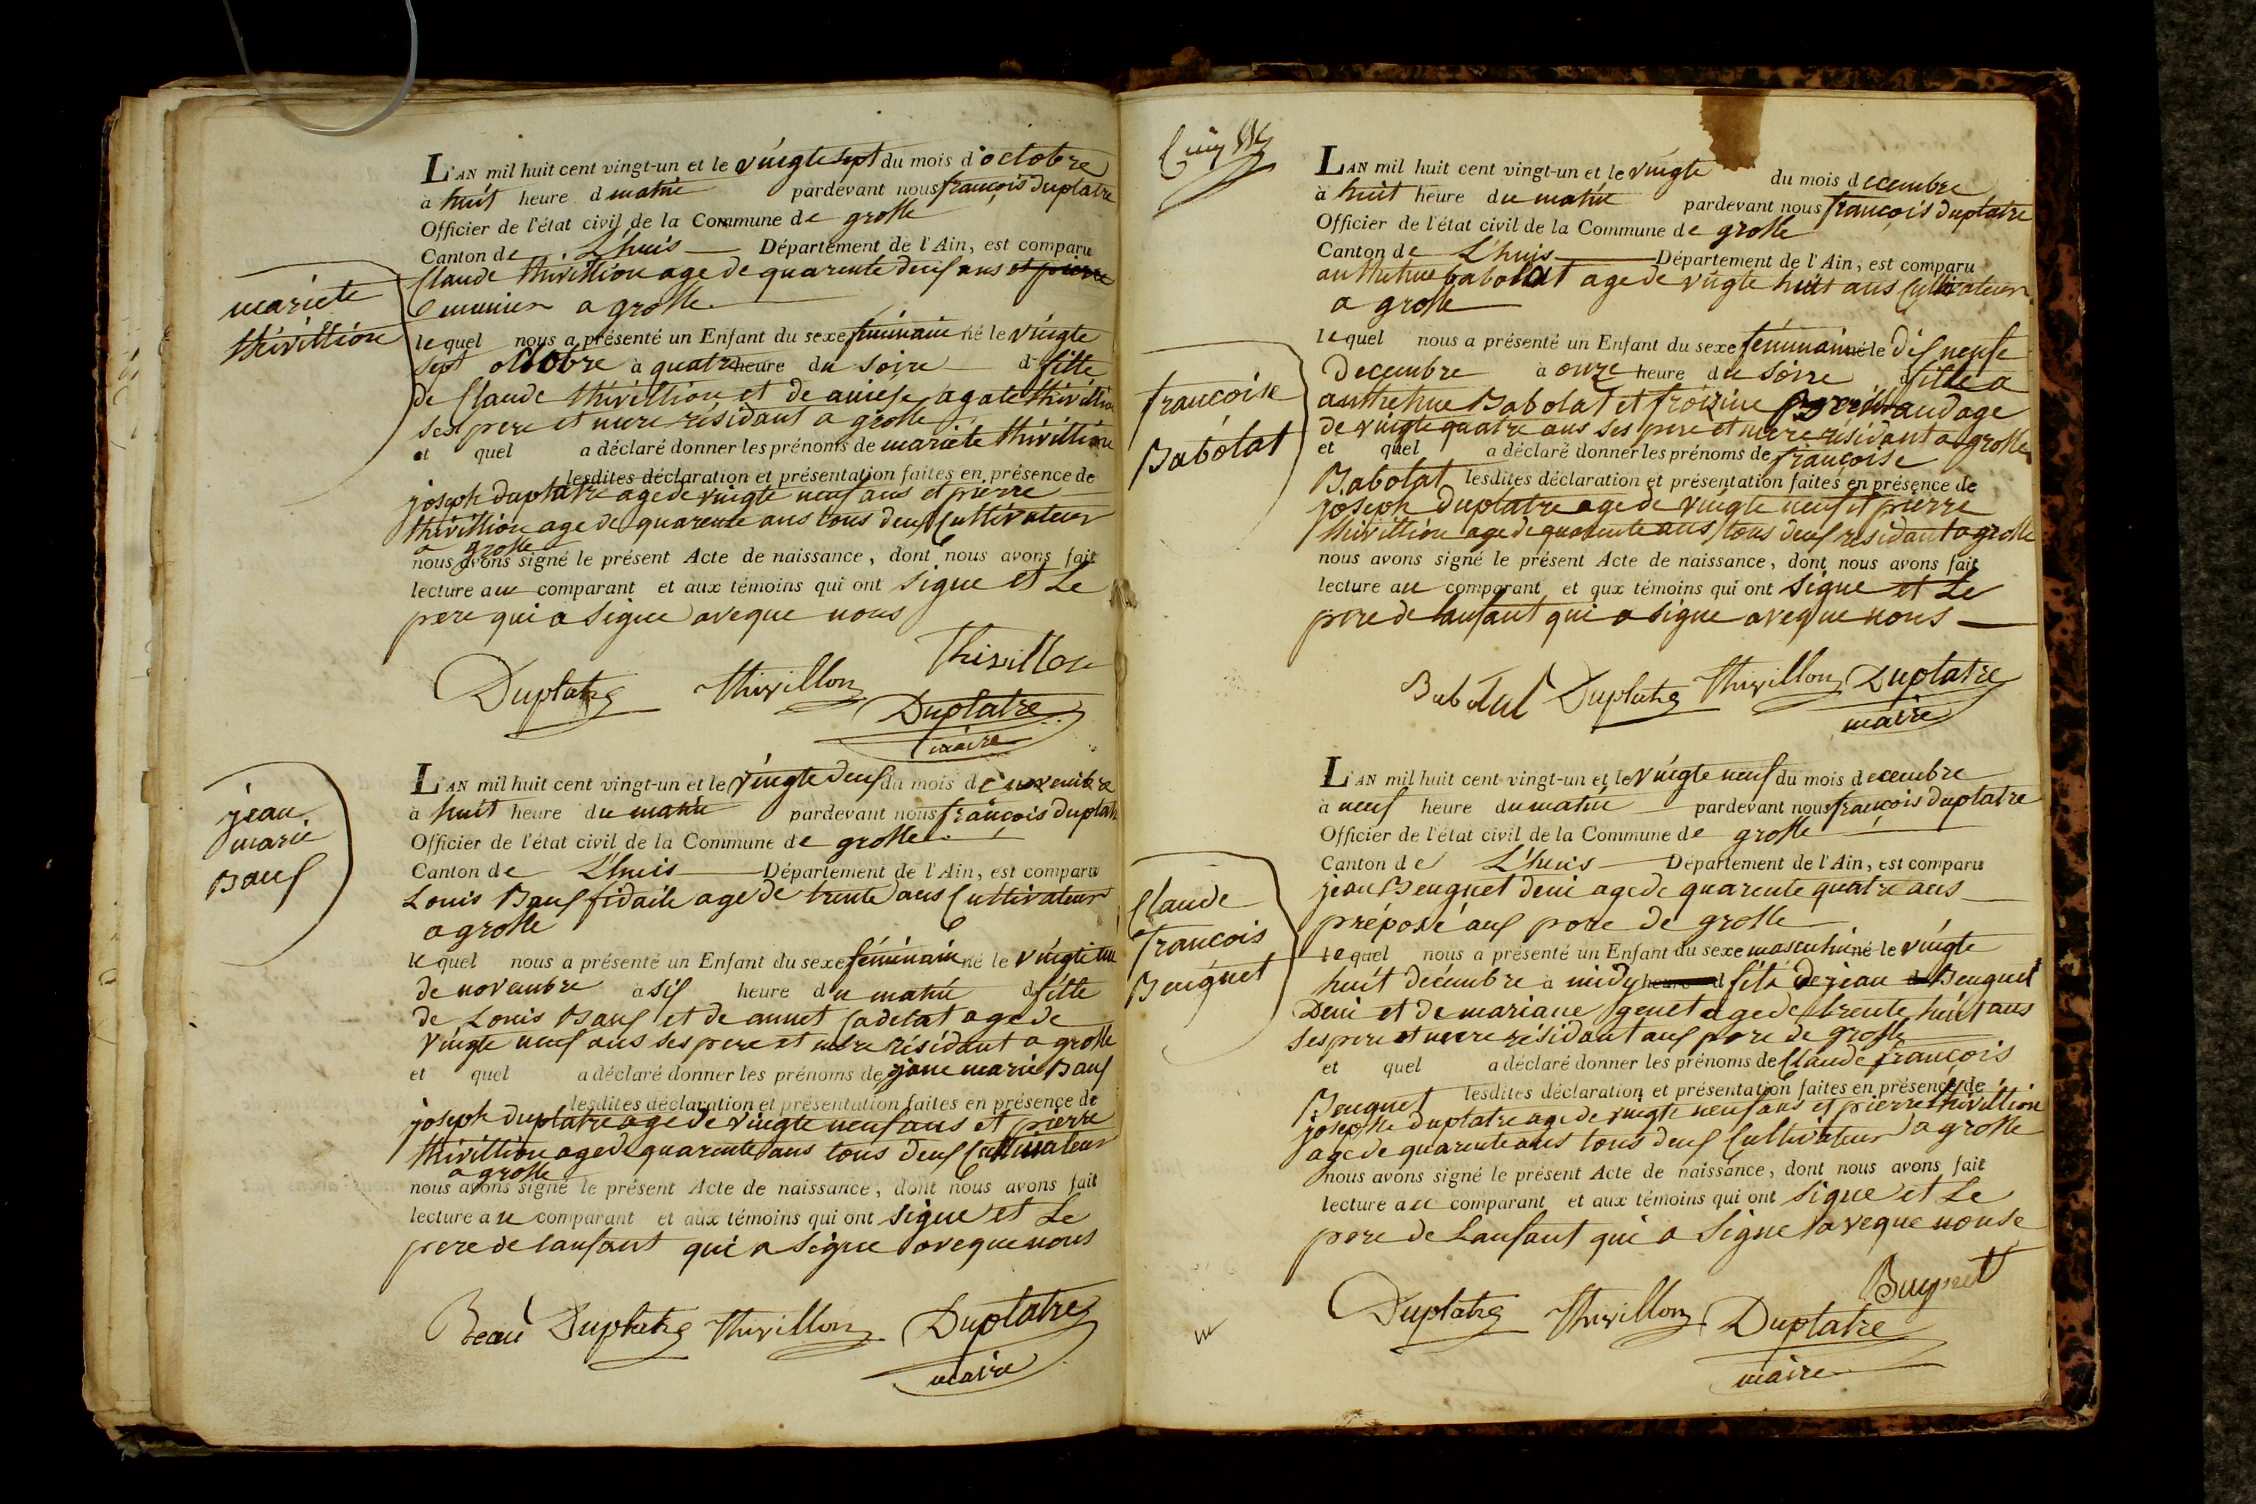 L'AN mil huit cent vingt-un et le vingte sept du mois d'octobre
à huit heure d matin pardevant nous françois duplatre
Officier de l'état civil de la Commune de grosle
Canton de L'huis Département de l'Ain, est comparu
Claude thivillion age de quarente deuf ans et pierre
a grosle
mariete
thivillion
le quel nous a présenté un Enfant du sexe féminain né le vingte
sept octobre à quatre heure du soire d fille
de Claude thivillion et de agate thivillion
ses pere et mere résidant a grosle
et quel a déclaré donner les prénoms de mariete thivillion
lesdites déclaration et présentation faites en présence de
joseph duplatre age de vingte neuf ans et pierre
thivillion age de quarente ans tous deuf Cultivateur
a grosle
nous avons signé le présent Acte de naissance, dont nous avons fait
lecture au comparant et aux témoins qui ont signe et Le
pere qui a signe aveque nous
Thivillon
Duplatre thivillon
Duplatre
maire
L'AN mil huit cent vingt-un et le vingte deuf du mois de novembre
à huit heure du matin pardevant nous françois duplatre
Officier de l'état civil de la Commune de grosle
Canton de L'huis Département de l'Ain, est comparu
jean
marie
Bauf
Louis Bauf fidaile age de trente ans Cultivateur
a grosle
le quel nous a présenté un Enfant du sexe féminain né le vingte un
de novembre à sif heure du matin d fille
de Louis Bauf et de annet Cadelat age de
vingte neuf ans ses pere et mere résidant a grosle
et quel a déclaré donner les prénoms de jane marie Bauf
lesdites déclaration et présentation faites en présence de
joseph duplatre age de vingte neuf ans et pierre
thivillion age de quarente ans tous deuf Cultivateur
a grosle
nous avons signé le présent Acte de naissance, dont nous avons fait
lecture au comparant et aux témoins qui ont signe et Le
pere de lanfant qui a signe aveque nous
Beau Duplatre thivillon Duplatre
maire
L'AN mil huit cent vingt-un et le vingte du mois decembre
à huit heure du matin pardevant nous françois duplatre
Officier de l'état civil de la Commune de grosle
Canton de L'huis Département de l'Ain, est comparu
anthehue babolat age de vigte huit ans Cultivateur
a grosle
le quel nous a présenté un Enfant du sexe féminain né le dif neufe
Decembre à onze heure du soire d fille a
françoise
Babolat
anthehue Babolat et froizine age
de vingte quatre ans ses pere et mere résidant a grosle
et quel a déclaré donner les prénoms de françoise
Babolat lesdites déclaration et présentation faites en présence de
joseph duplatre age de vingte neuf et pierre
thivillion age de quarente ans tous deuf residant a grosle
nous avons signé le présent Acte de naissance, dont nous avons fait
lecture au comparant et aux témoins qui ont signe et Le
pere de lanfant qui a signe aveque nous
Babolat Duplatre thivillon Duplatre
maire
L'AN mil huit cent vingt-un et le vingte neuf du mois decembre
à neuf heure du matin pardevant nous françois duplatre
Officier de l'état civil de la Commune de grosle
Canton de L'huis Département de l'Ain, est comparu
jean Beuguet deni age de quarente quatre ans
préposé auf pore de grosle
Claude
françois
Beuguet
le quel nous a présenté un Enfant du sexe masculin né le vingte
huit decémbre à midy heure d fils de jean d Beuguet
Deni et de mariane genet age de trente huit ans
ses pere et mere résidant auf pore de grosle
et quel a déclaré donner les prénoms de Claude françois
Beuguet lesdites déclaration et présentation faites en présence de
josephe duplatre age de vingte neuf ans et pierre thivillion
age de quarente ans tous deuf Cultivateur a grosle
nous avons signé le présent Acte de naissance, dont nous avons fait
lecture au comparant et aux témoins qui ont signe et Le
pere de Lanfant qui a Signe aveque nouse
Buynet
Duplatre thivillon Duplatre
maire